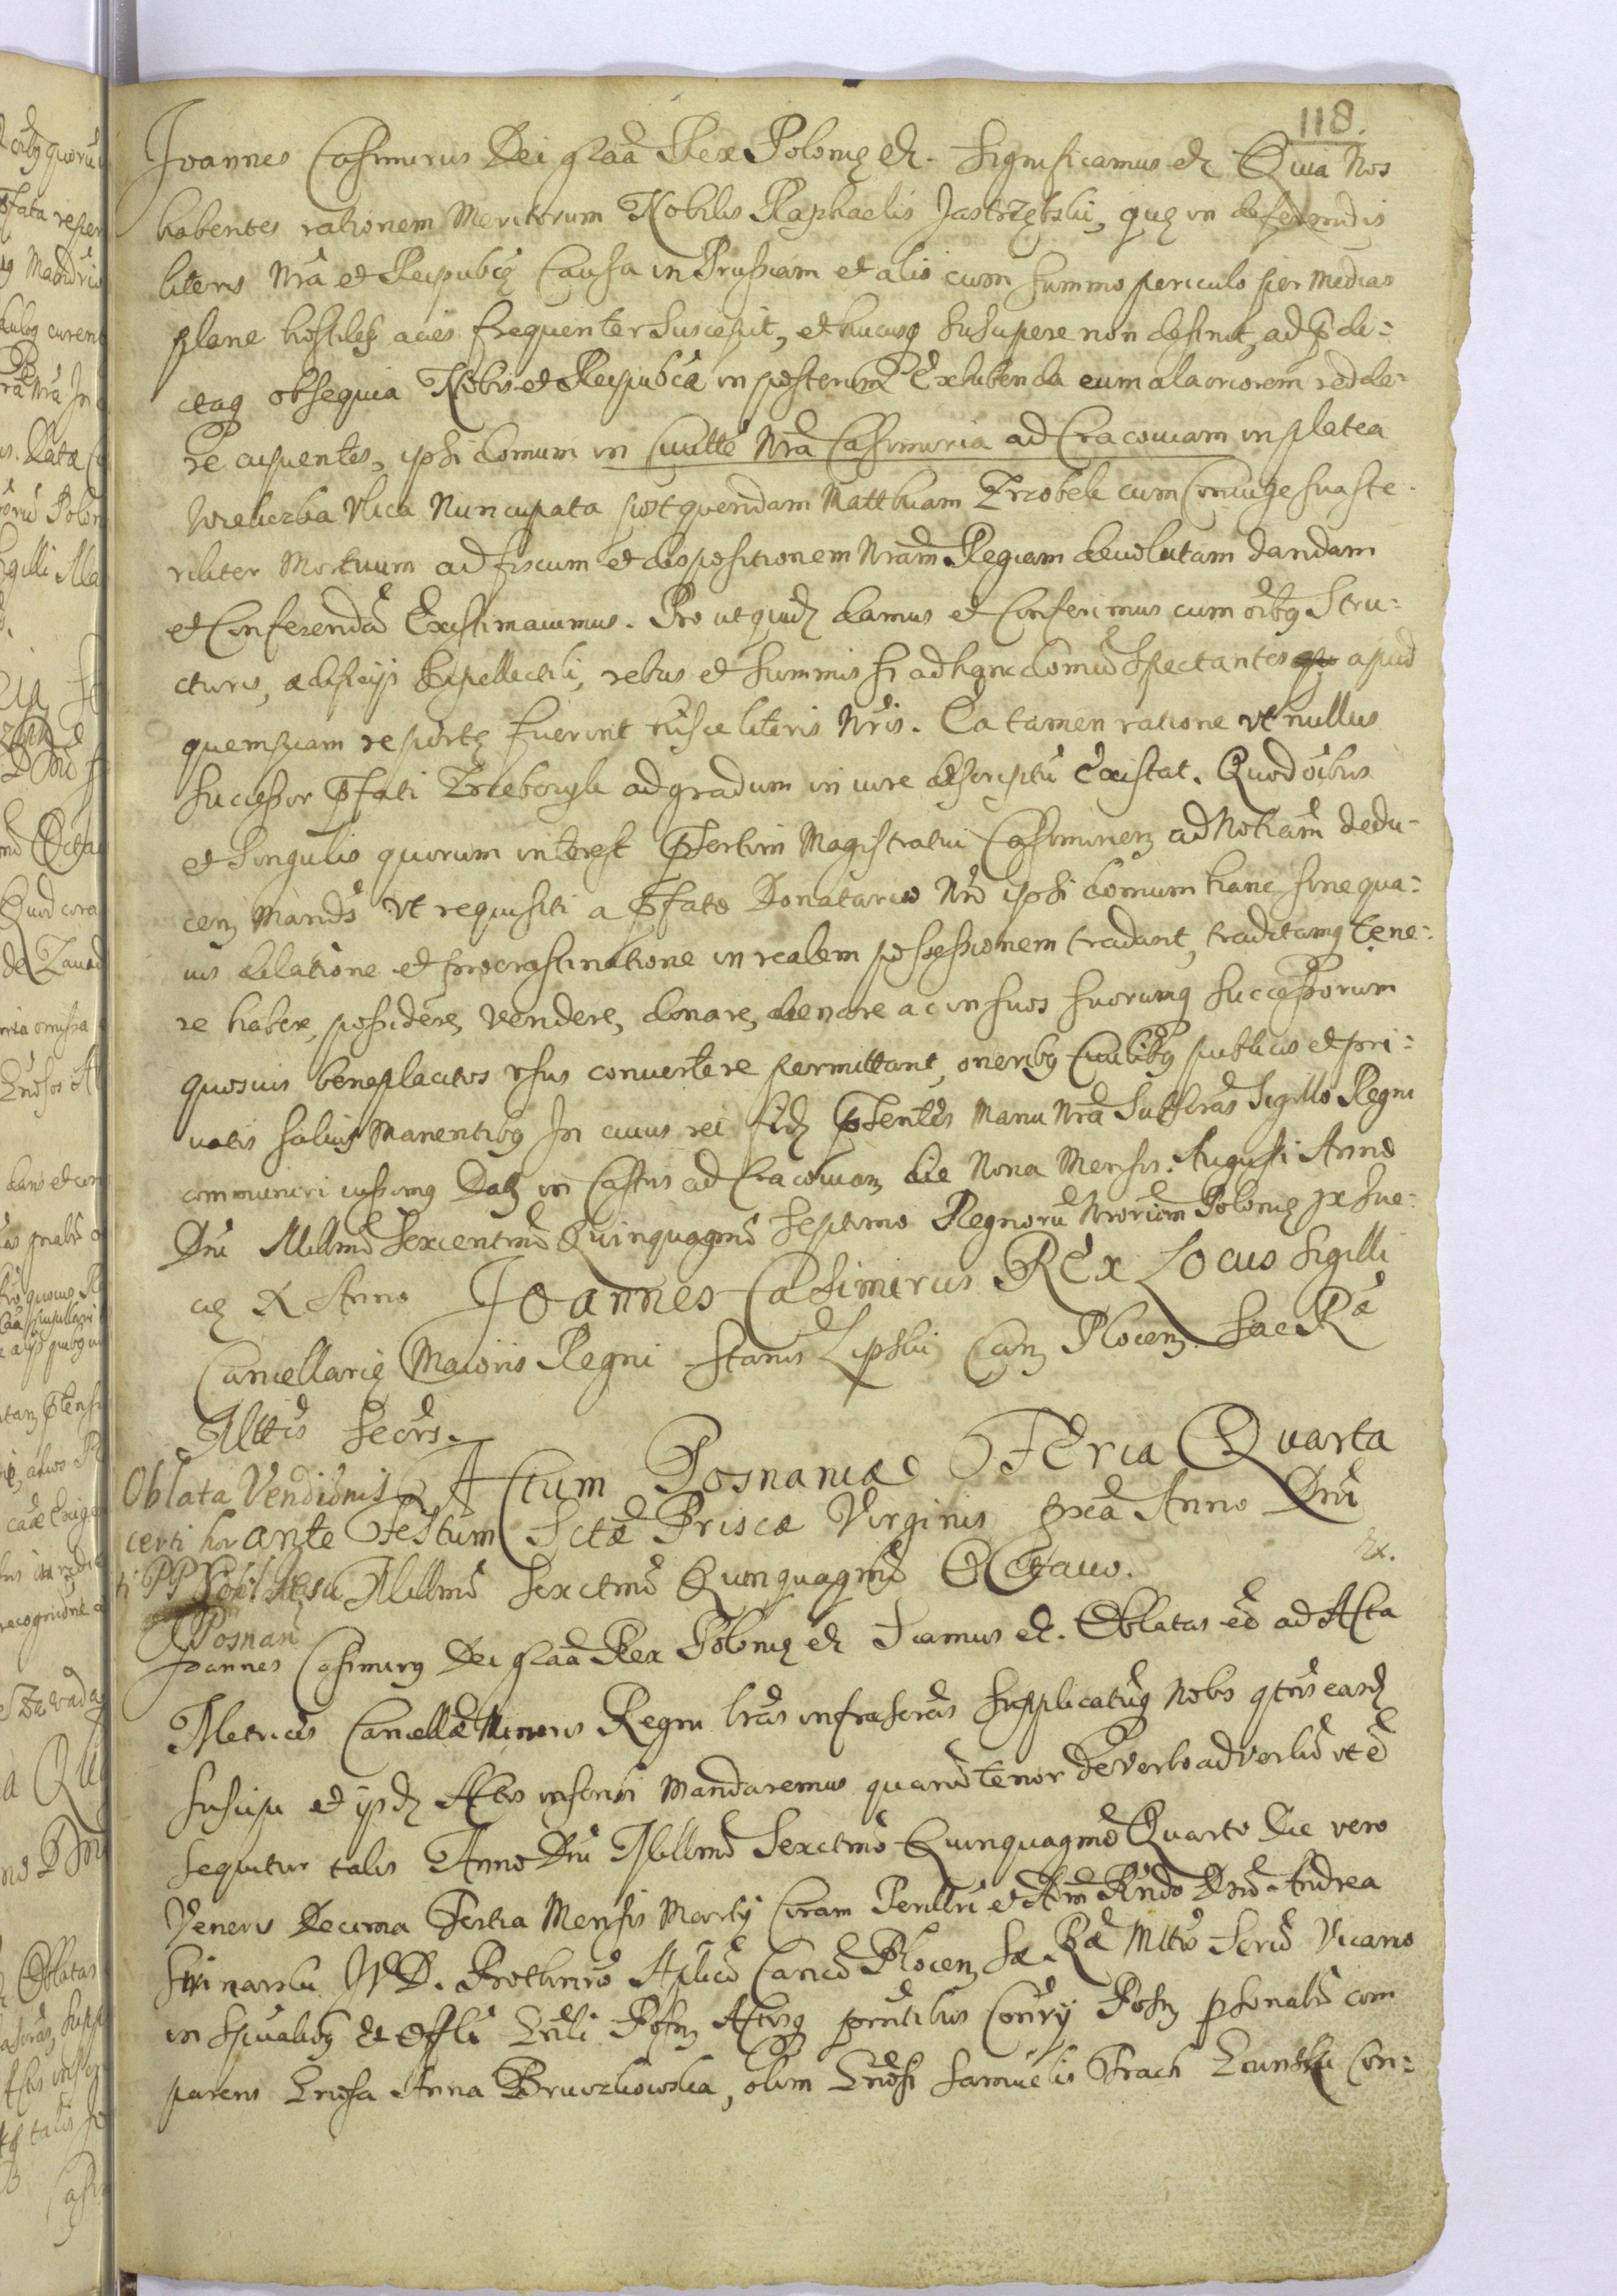 118.
Joannes Casimirus Dei graa Rex Polonię etc. Significamus etc Quia Nos
habentes rationem Meritorum Nobilis Raphaelis Jastrzębski, quę in deferendis
literis Nra et Reipubcę Causa in Prussiam et alio cum summo periculo per medias
plane hostiles acies frequenter suscepit, et hucusq suscipere non desinit, ad p di-
ctaq obsequia Nobis et Reipubcæ in posterum Exhibenda eum alacriorem redde-
re cupientes, ipsi domum in Ciuitte Nra Casimiria ad Cracouiam in platea
Wielicka Vlica Nuncupata post quendam Matthiam Trzobek cum Coniuge sua ste-
riliter Mortuum ad fiscum et dispositionem Nram Regiam deuolutam dandam
et Conferenda Existimauimus. Pro ut quidz damus et Conferimus cum oibq Stru-
cturis, ædificijs supellectili, rebus et summis si ad hanc domu spectantes apud
quempiam repertę fuerint hisce literis Nris. Ea tamen ratione vt nullus
successor pfati ad gradum in iure adscriptu Existat. Quod oibus
et singulis quorum interest psertim Magistratui Casimirien ad Notiam dedu-
cen Mands vt requisiti a pfato Donatario Nro ipsi domum hanc sine qua-
uis dilatione et procrastinatione in realem possessionem tradant, traditamq tene-
re habere, possidere, vendere, donare, alienare ac in suos suorumq successorum
quosuis beneplacitos vsus conuertere permittant, oneribq Ciuilibq publicis et pri-
uatis saluis Manentibq In cuius rei fidz psentes Manu Nra Subscras Sigillo Regni
communiri iussimq Datz in Castris ad Cracouiam die Nona Mensis Augusti Anno
Dni Millmo Sexcentmo Quinquagmo Septimo Regnoru Nrorum Polonię IX Sue-
cię X Anno Joannes Casimirus REx Locus Sigilli
Cancellarię Maioris Regni Stanis Lipski Can Plocen Sac Ra
Mttis Secrs.
Oblata Vendionis
certi hor
ti PP
Posnan
Actum Posnaniæ FEria Quarta
ante Festum Sctæ Priscæ Virginis pxa Anno Dni
Millmo Sexctmo Quinquagmo Octauo.
Ex.
Joannes Casimirq Dei graa Rex Polonię etc Scamus etc. Oblatas eo ad Acta
Metrices Cancellæ Minoris Regni lras infrascras supplicatuq Nobs qtns easdz
suscipi et ipsdz Actis inseri Mandaremus quaru tenor de verbo ad verbu vt e
sequitur talis Anno Dni Millmo Sexctmo Quinquagmo Quarto Die vero
Veneris Decima Tertia Mensis Martij Coram Perillri et Adm Rndo Dno Andrea
Swinarski IVD. Prothnrio Aplico Canco Plocen Sæ Ræ Mttis Secrio Vicario
in Spiualibq et Offli Gnli Posn Actisq pntibus Consrij Posn psonalr com
parens Gnosa Anna Bruczkowska, olim Gnosi Samuelis Prach Con-